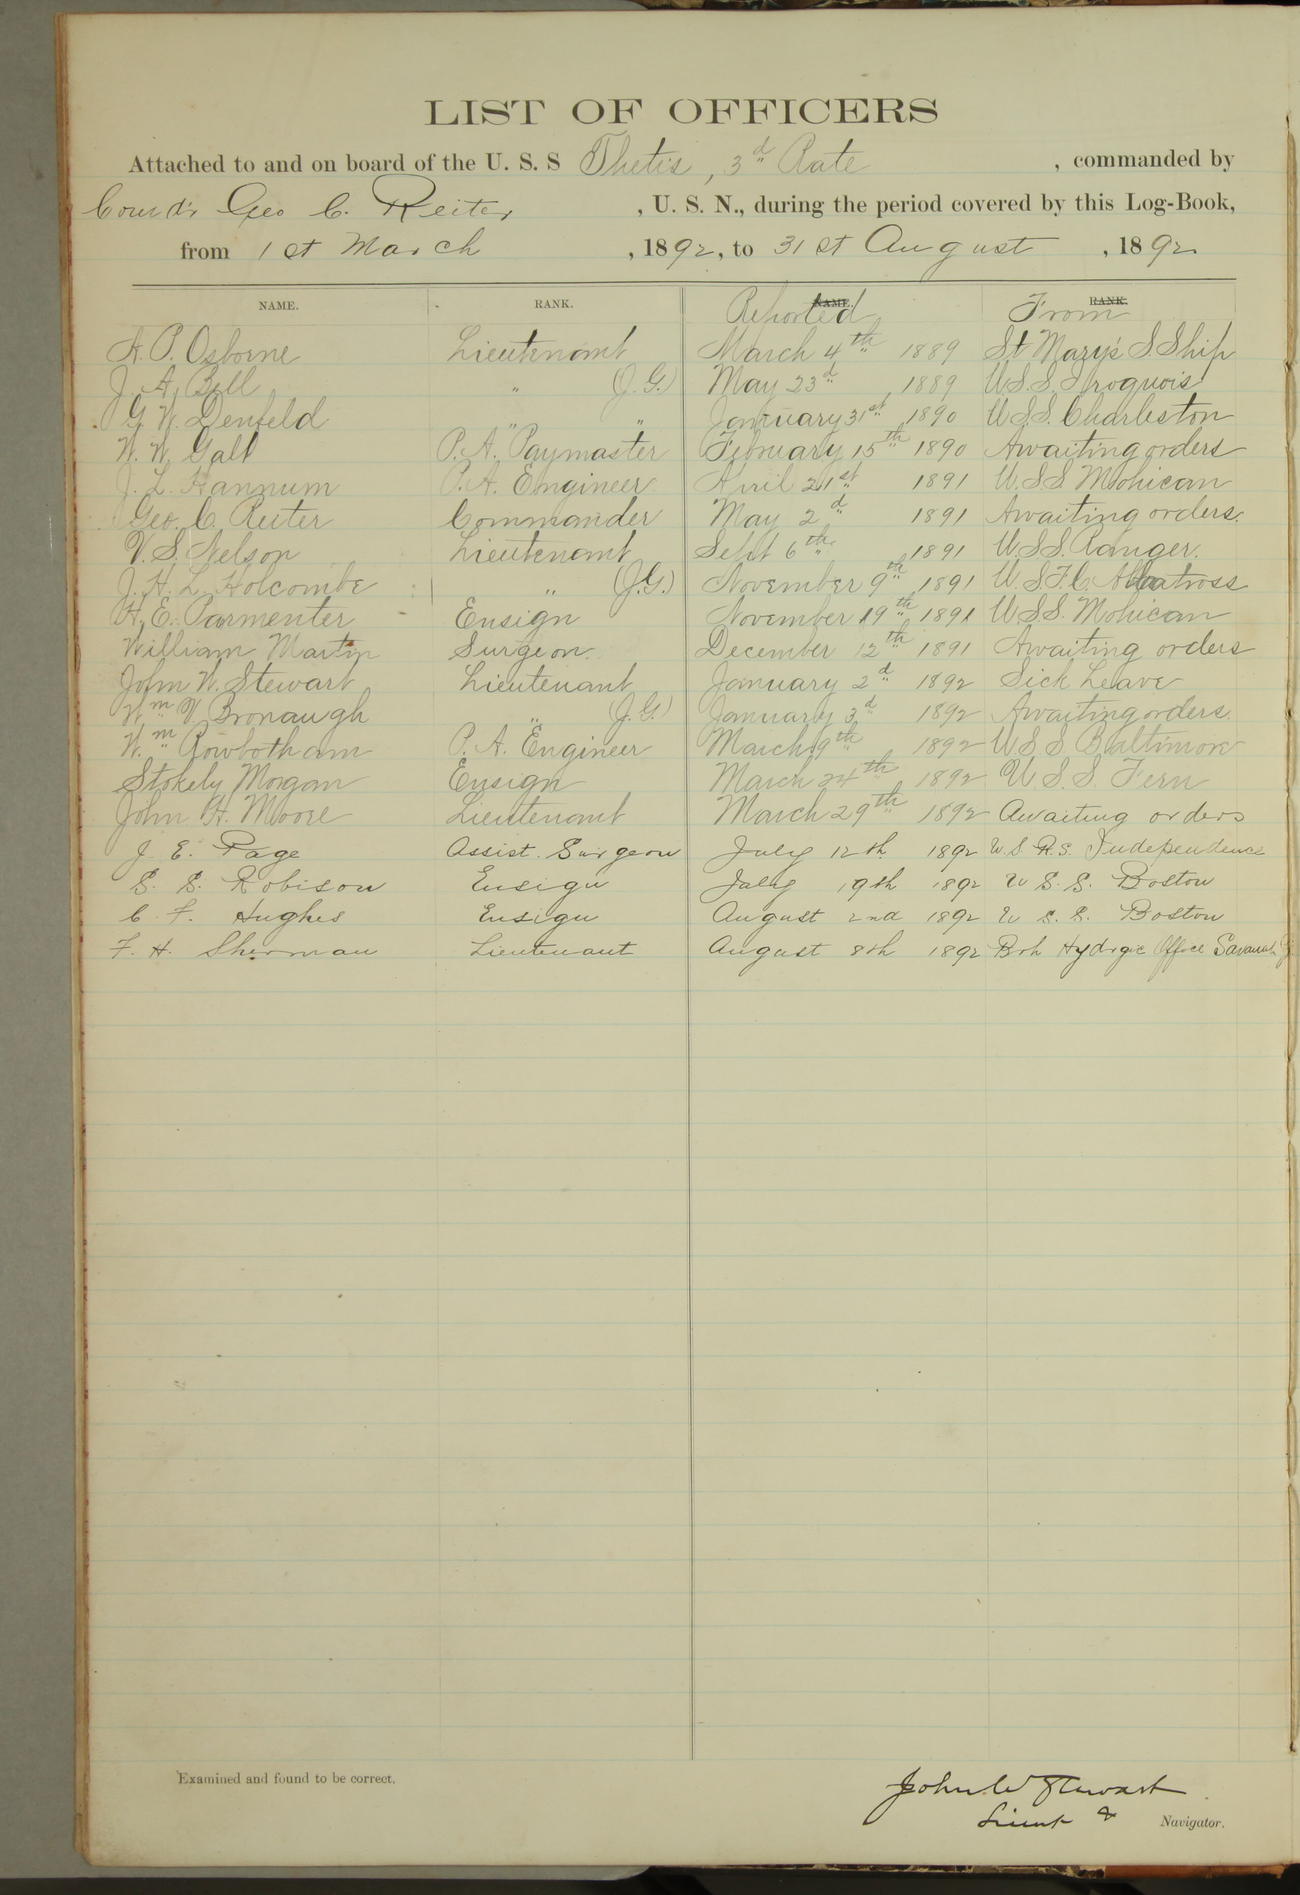 LIST OF OFFICERS
Attached to and on board of the U. S. S Thetis, 3d Rate, commanded by
Comd'r Geo C. Reiter, U. S. N., during the period covered by this Log-Book,
from 1st March, 1892, to 31st August, 1892
NAME. RANK. NAME. Reported RANK. From
A. P. Osborne Lieutenant March 4th 1889 St Mary's S. Ship
J. A. Bell " (J.G.) May 23d 1889 U.S.S. Iroquois
G. W. Denfeld " " January 31st 1890 U.S.S. Charleston
W. W. Galt P. A. Paymaster February 15th 1890 Awaiting orders
J. L. Hannum P. A. Engineer April 21st 1891 U.S.S Mohican
Geo. C. Reiter Commander May 2d 1891 Awaiting orders.
V. S. Nelson Lieutenant Sept 6th 1891 U.S.S. Ranger.
J. H. L. Holcombe " (J.G.) November 9th 1891 U.S.F.C. Albatross
H. E. Parmenter Ensign November 19th 1891 U.S.S. Mohican
William Martin Surgeon. December 12th 1891 Awaiting orders
John W. Stewart Lieutenant January 2d 1892 Sick Leave
Wm V Bronaugh " (J.G.) January 3d 1892 Awaiting orders.
Wm Rowbotham P. A. Engineer March 9th 1892 U.S.S. Baltimore
Stokely Morgan Ensign March 24th 1892 U.S.S. Fern
John H. Moore Lieutenant March 29th 1892 Awaiting orders
J. E. Page Assist. Surgeon July 12th 1892 U.S.R.S. Independence
S. S. Robison Ensign July 19th 1892 U S. S. Boston
C. F. Hughes Ensign August 2nd 1892 U S. S. Boston
F. H. Sherman Lieutenant August 8th 1892 Brh Hydrgic Office Savanah
Examined and found to be correct.
John W Stewart
Lieut & Navigator.